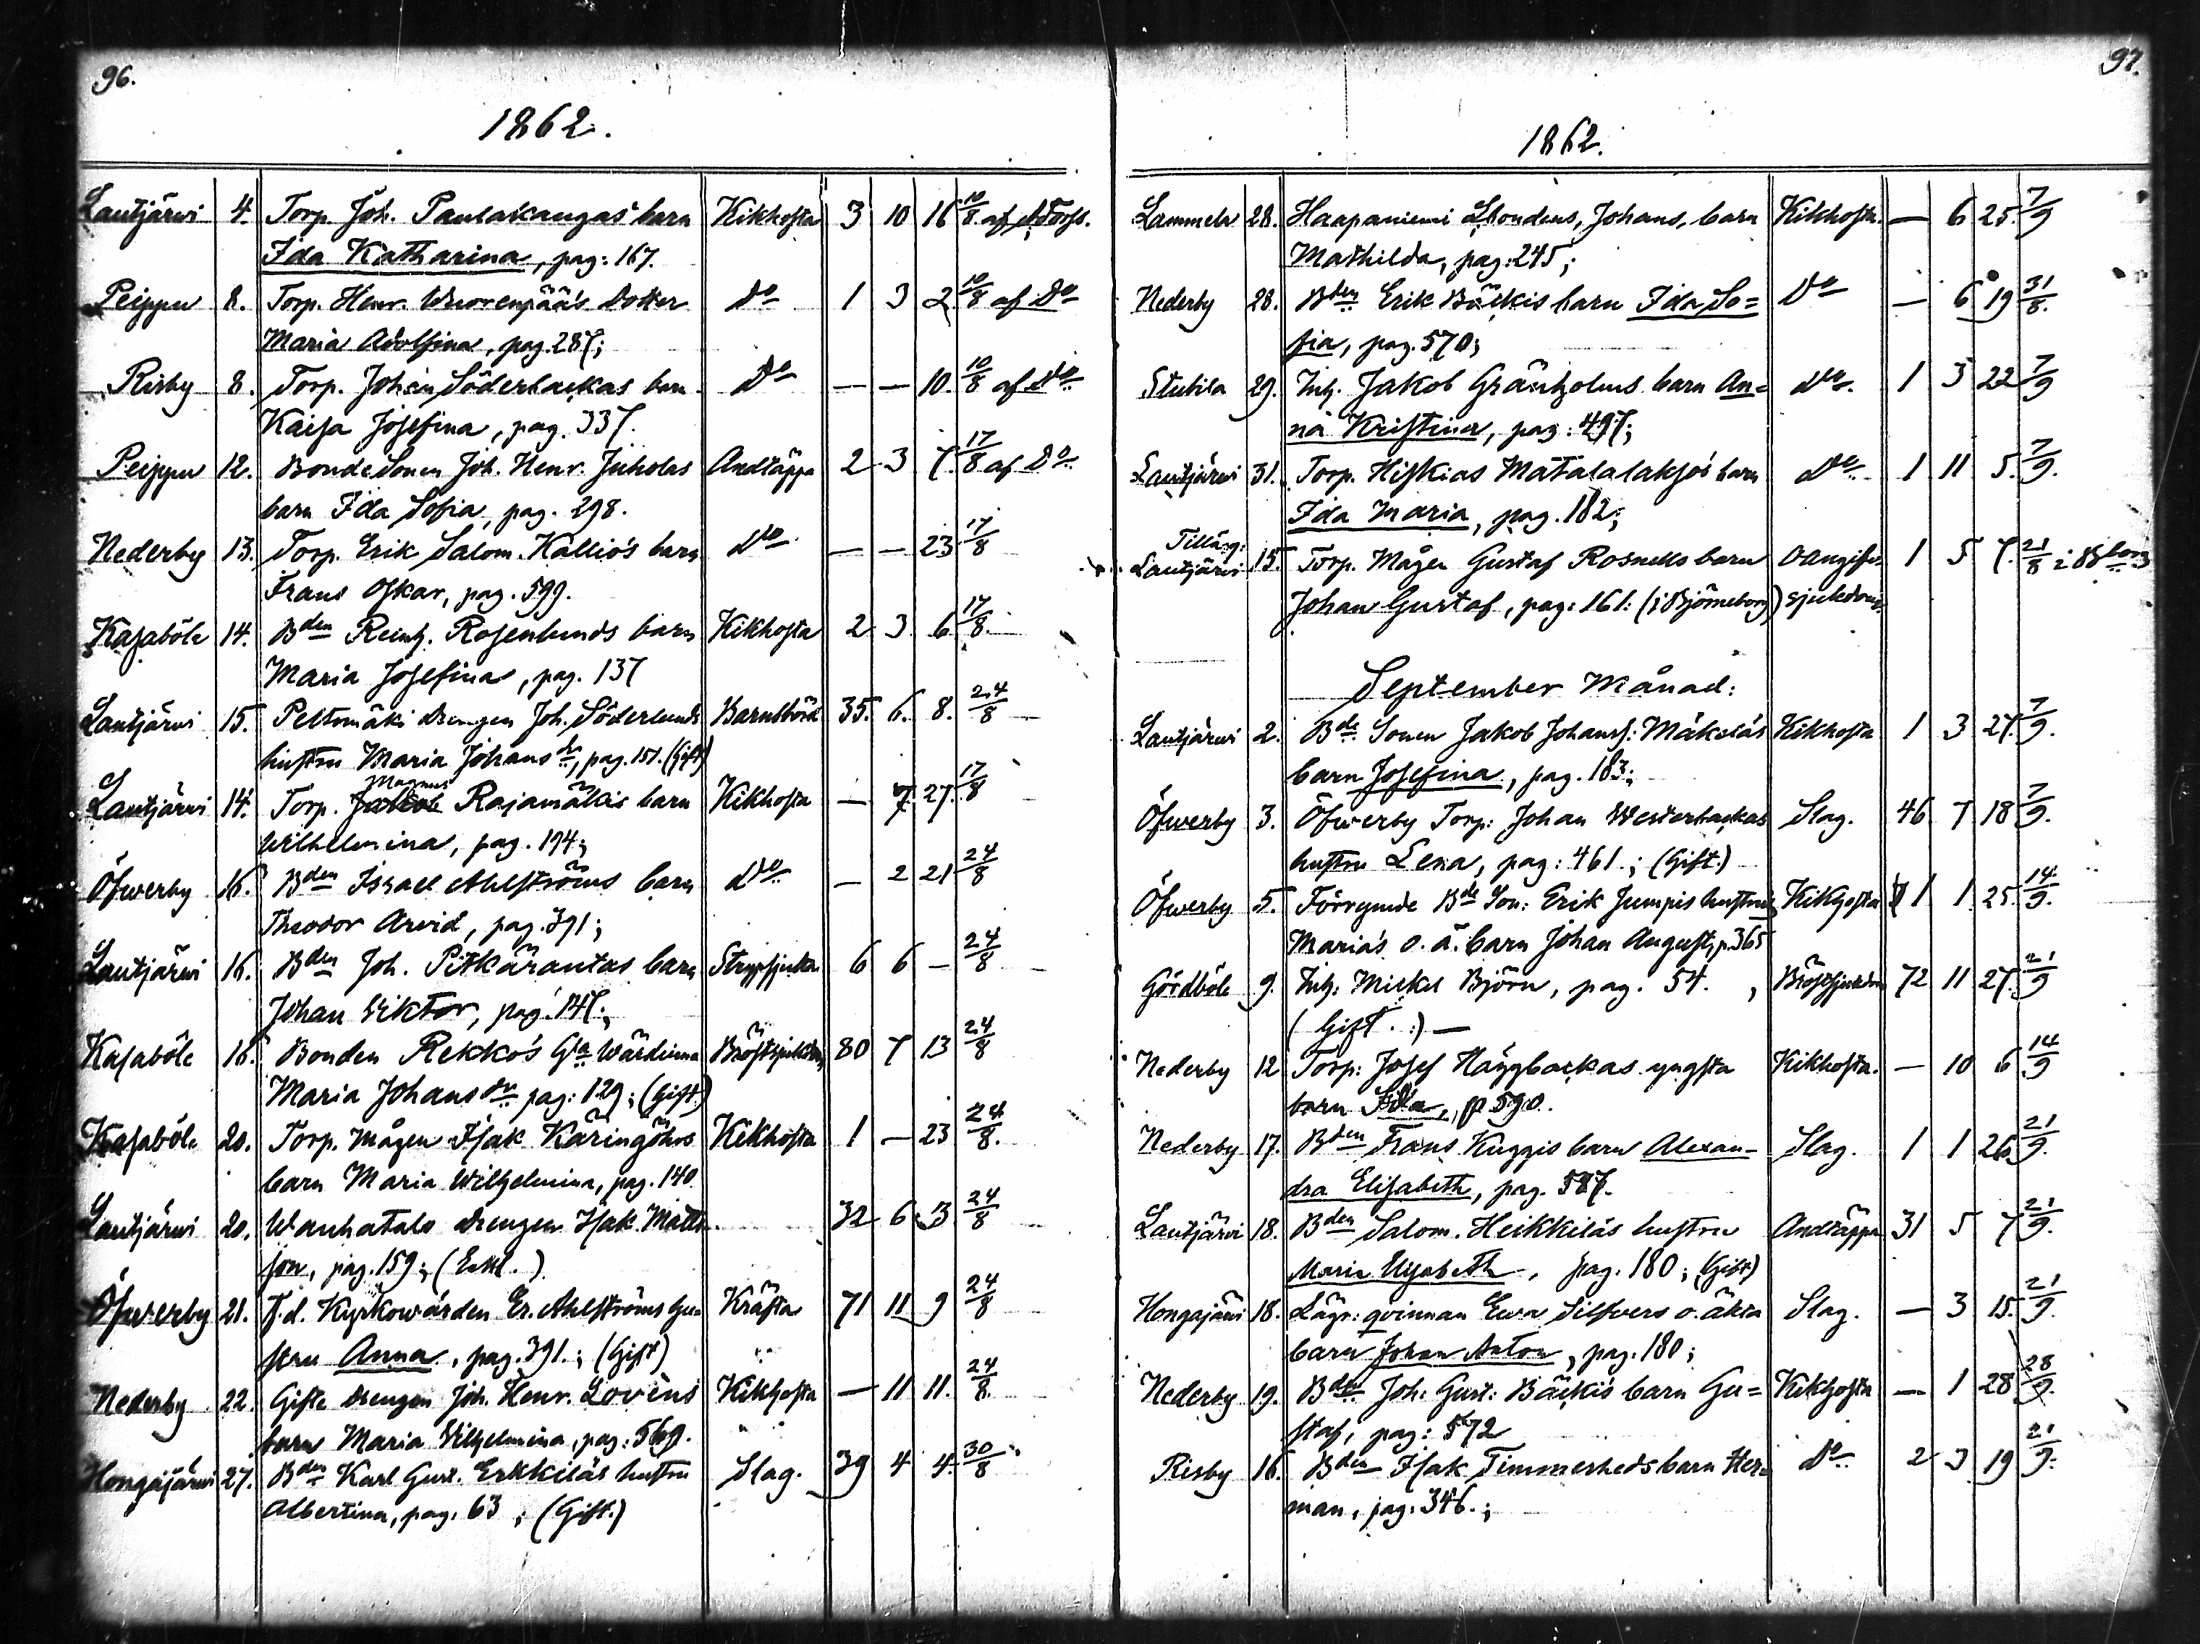 96.
1862.
Lautjärwi 4. Torp. Joh. Pantakangas barn Kikhosta 3 10 16 10/8 af A Torfs.
Ida Katharina, pag: 167.
Peippu 8. Torp. Henr. Wuorenpää's Dotter Do 1 3 2 10/8 af Do
Maria Adolfina, pag. 287;
Risby 8. Torp. Johan Söderbackas barn Do — — 10. 10/8 af Do
Kaisa Josefina, pag. 337.
Peippu 12. Bonde Sonen Joh. Henr. Juholas Andtäppa 2 3 7. 17/8 af Do
barn Ida Sofia, pag. 298.
Nederby 13. Torp. Erik Salom. Kallio's barn Do — — 23 17/8
Frans Oskar, pag. 599.
Kasaböle 14. Bden Reinh. Rosenlunds barn Kikhosta 2 3 6 17/8.
Maria Josefina, pag. 137
Lautjärwi 15. Peltomäki drengen Joh. Söderlunds Barnsbörd 35. 6. 8. 24/8
hustru Maria Johansdr, pag. 151. (Gift)
Magnus
Lautjärwi 14. Torp. Jakob Rajamäkis barn Kikhosta — 7. 27. 17/8
Wilhelmina, pag. 194;
Öfwerby 16. Bden Israel Ahlströms barn Do — 2 21 24/8
Theodor Arvid, pag. 391;
Lautjärwi 16. Bden Joh. Pitkärantas barn Strypsjuka 6 6 — 24/8
Johan Viktor, pag. 147;
Kasaböle 16. Bonden Rekko's Gla Wärdinna Bröstsjukdom 80 7 13 24/8
Maria Johansdr pag: 129; (Gift.)
Kasaböle 20. Torp. Mågen Isak Käringöhrs Kikhosta 1 — 23 24/8.
barn Maria Wilhelmina, pag. 140.
Lautjärwi 20. Wanhatalo drengen Isak Matts- 32 6 13 24/8
son, pag. 159; (Enkl.)
Öfwerby 21. F.d. Kyrkowärden Er. Ahlströms hu- Kräfta 71 11 9 24/8
stru Anna, pag. 391.; (Gift)
Nederby 22. Gifte drengen Joh. Henr. Lovéns Kikhosta — 11 11. 24/8.
barn Maria Vilhelmina, pag: 569.
Hongajärwi 27. Bden Karl Gust. Erkkiläs hustru Slag. 39 4 4. 30/8
Albertina, pag. 63; (Gift.)
97.
1862.
Lammela 28. Haapaniemi Åbondens, Johans, barn Kikhosta. — 6 25. 7/9
Mathilda, pag: 245;
Nederby 28. Bden Erik Bäckis barn Ida So= Do — 6 19 31/8.
fia, pag. 570;
Stubila 29. Inh. Jakob Gränholms barn An= Do. 1 3 22 7/9
na Kristina, pag: 497;
Lautjärwi 31. Torp. Hiskias Matalalaksos barn Do. 1 11 5. 7/9.
Ida Maria, pag. 182;
Tilläg:
Lautjärwi 15. Torp. Mågen Gustaf Rosnells barn Oangifven 1 5 7. 21/8 i Bborg
Johan Gustaf, pag: 161: (i Björneborg) sjukdom.
September Månad:
Lautjärwi 2. Bde Sonen Jakob Johanss: Mäkeläs Kikhosta 1 3 27. 7/9.
barn Josefina, pag. 183;
Öfwerby 3. Öfwerby Torp: Johan Westerbackas Slag. 46 7 18 7/9.
hustru Lena, pag: 461.; (Gift.)
Öfwerby 5. Förrymde Bde Son: Erik Jumpis hustru Kikhosta 1 1 25. 14/9.
Maria's o. ä. barn Johan August, p. 365
Gördböle 9. Inh: Mickel Björn, pag. 54. , Bröstsjukdom 72 11 27. 21/9
(Gift.:) —
Nederby 12 Torp: Josef Häggbackas yngsta Kikhosta. — 10 6 14/9
barn Ida, p 590.
Nederby 17. Bden Frans Kuggis barn Alexan- Slag. 1 1 26 21/9.
dra Elisabeth, pag. 587.
Lautjärwi 18. Bden Salom. Heikkiläs hustru Andtäppa 31 5 7 21/9.
Maria Elisabeth, pag. 180; (Gift)
Hongajärwi 18. Lägr: qvinnan Ewa Silfvers o. äkta Slag. — 3 15. 21/9.
barn Johan Anton, pag. 180;
Nederby 19. Bden Joh. Gust: Bäckis barn Gu= Kikhosta — 1 28 28/9.
staf, pag: 572
Risby 16. Bden Isak Timmerheds barn Her- Do. 2 3 19 21/9.
man, pag. 346.;